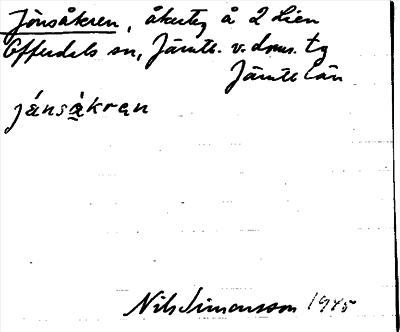 Jönsåkren, åkerteg å 2 Lien
Offerdals sn, Jämtl. v. doms. tg
Jämtl län
jánsàkran
Nils Simonsson 1945